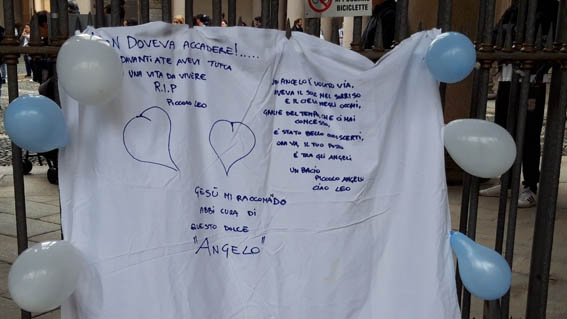 NON DOVEVA ACCADERE!.....
DAVANTI A TE AVEVI TUTTA
UNA VITA DA VIVERE
R.I.P
PICCOLO LEO
UN ANGELO È VOLATO VIA,
AVEVA IL SOLE NEL SORRISO
E IL CIELO NEGLI OCCHI,
GRAZIE DEL TEMPO CHE CI HAI
CONCESSO,
È STATO BELLO CONOSCERTI,
ORA VA IL TUO POSTO
È TRA GLI ANGELI
UN BACIO
PICCOLO ANGELO
CIAO LEO
GESÙ MI RACCOMANDO
ABBI CURA DI
QUESTO DOLCE
"ANGELO"
BICICLETTE